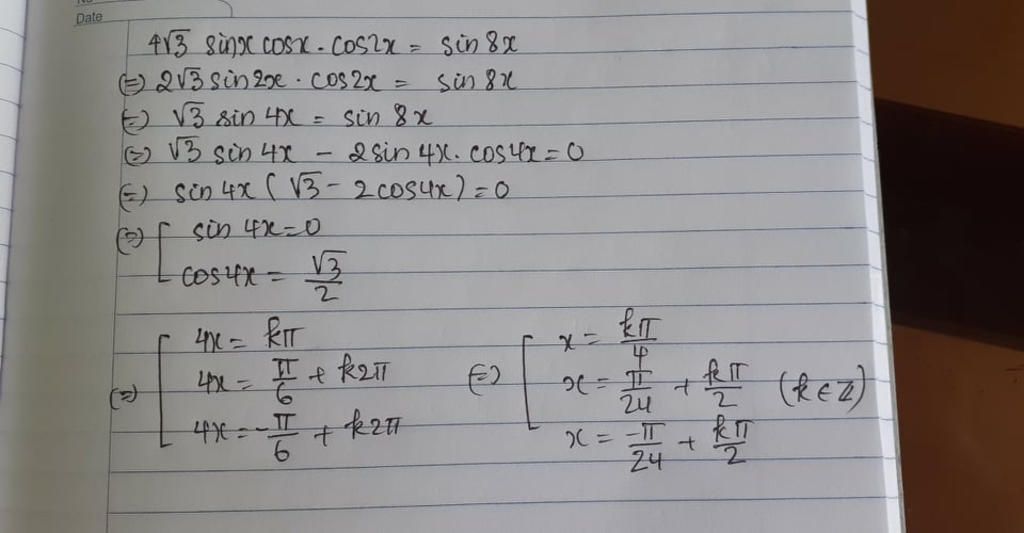 No
Date
4√3 sinx cosx . cos2x = sin 8x
(=) 2√3 sin2x . cos2x = sin 8x
(=) √3 sin 4x = sin 8x
(=) √3 sin 4x - 2 sin 4x. cos4x = 0
(=) sin 4x ( √3 - 2 cos4x ) = 0
(=) [ sin 4x = 0
cos4x = √3/2
(=) [ 4x = kπ
4x = π/6 + k2π
4x = -π/6 + k2π
(=) [ x = kπ/4
x = π/24 + kπ/2 (k ∈ Z)
x = -π/24 + kπ/2